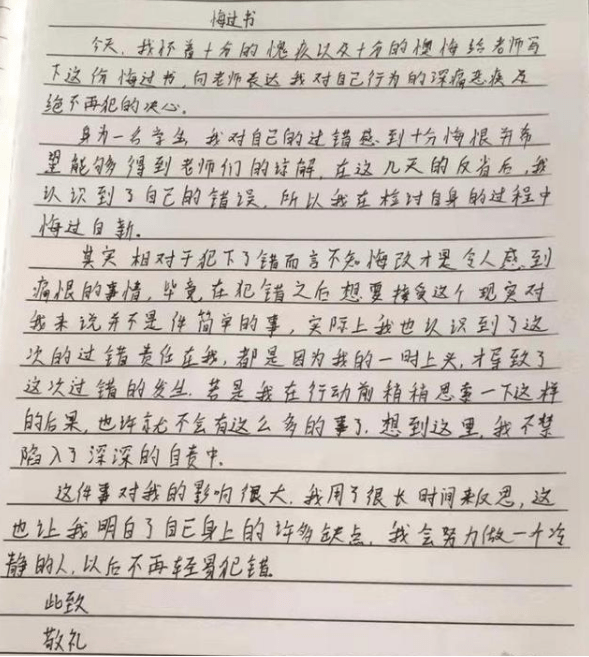 悔过书
今天,我怀着十分的愧疚以及十分的懊悔给老师写
下这份悔过书,向老师表达我对自己行为的深痛恶疾及
绝不再犯的决心。
身为一名学生 我对自己的过错感到十分悔恨并希
望能够得到老师们的谅解,在这几天的反省后,我
认识到了自己的错误,所以我在检讨自身的过程中
悔过自新.
其实 相对于犯下了错而言不知悔改才是令人感到
痛恨的事情,毕竟在犯错之后想要接受这个现实对
我来说并不是件简单的事,实际上我也认识到了这
次的过错责任在我,都是因为我的一时上头,才导致了
这次过错的发生.若是我在行动前稍稍思索一下这样
的后果,也许就不会有这么多的事了.想到这里,我不禁
陷入了深深的自责中.
这件事对我的影响很大.我用了很长时间来反思,这
也让我明白了自己身上的许多缺点.我会努力做一个冷
静的人,以后不再轻易犯错.
此致
敬礼